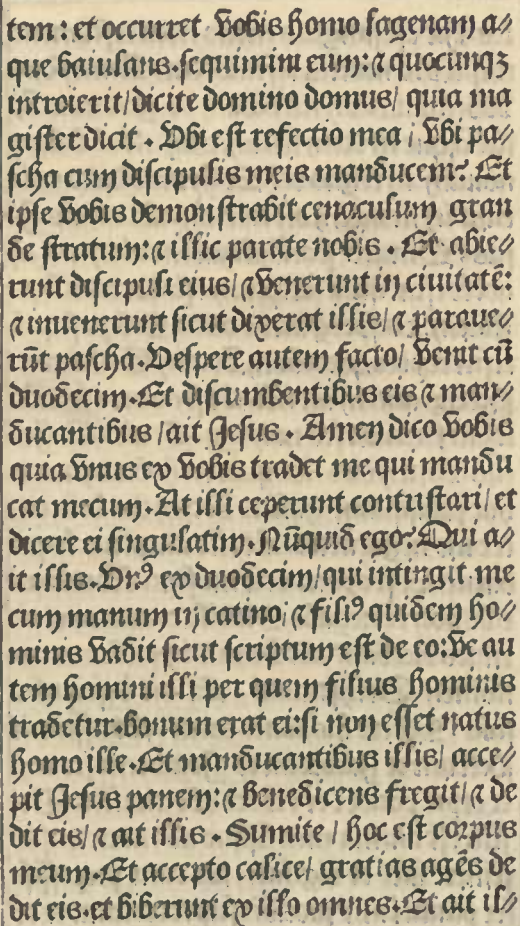 tem : et occurret vobis homo lagenam a⸗
que baiulans. sequimini eum: ⁊ quocunqꝫ
introierit/ dicite domino domus/ quia ma
gister dicit . Vbi est refectio mea / vbi pa⸗
scha cum discipulis meis manducem? Et
ipse vobis demonstrabit cenaculum gran
de stratum: ⁊ illic parate nobis . Et abie⸗
runt discipuli eius/ ⁊ venerunt in ciuitatē:
⁊ inuenerunt sicut dixerat illis/ ⁊ paraue⸗
rūt pascha. Vespere autem facto/ venit cū
duodecim. Et discumbentibus eis ⁊ man⸗
ducantibus / ait Jesus . Amen dico vobis
quia vnus ex vobis tradet me qui mandu
cat mecum. At illi ceperunt contristari/ et
dicere ei singulatim. Nūquid ego? Qui a⸗
it illis. Vnꝰ ex duodecim/ qui intingit me
cum manum in catino/ ⁊ filiꝰ quidem ho⸗
minis vadit sicut scriptum est de eo: ve au
tem homini illi per quem filius hominis
tradetur. bonum erat ei: si non esset natus
homo ille. Et manducantibus illis/ acce⸗
pit Jesus panem: ⁊ benedicens fregit/ ⁊ de
dit eis/ ⁊ ait illis . Sumite / hoc est corpus
meum. Et accepto calice/ gratias agēs de
dit eis. et biberunt ex illo omnes. Et ait il⸗